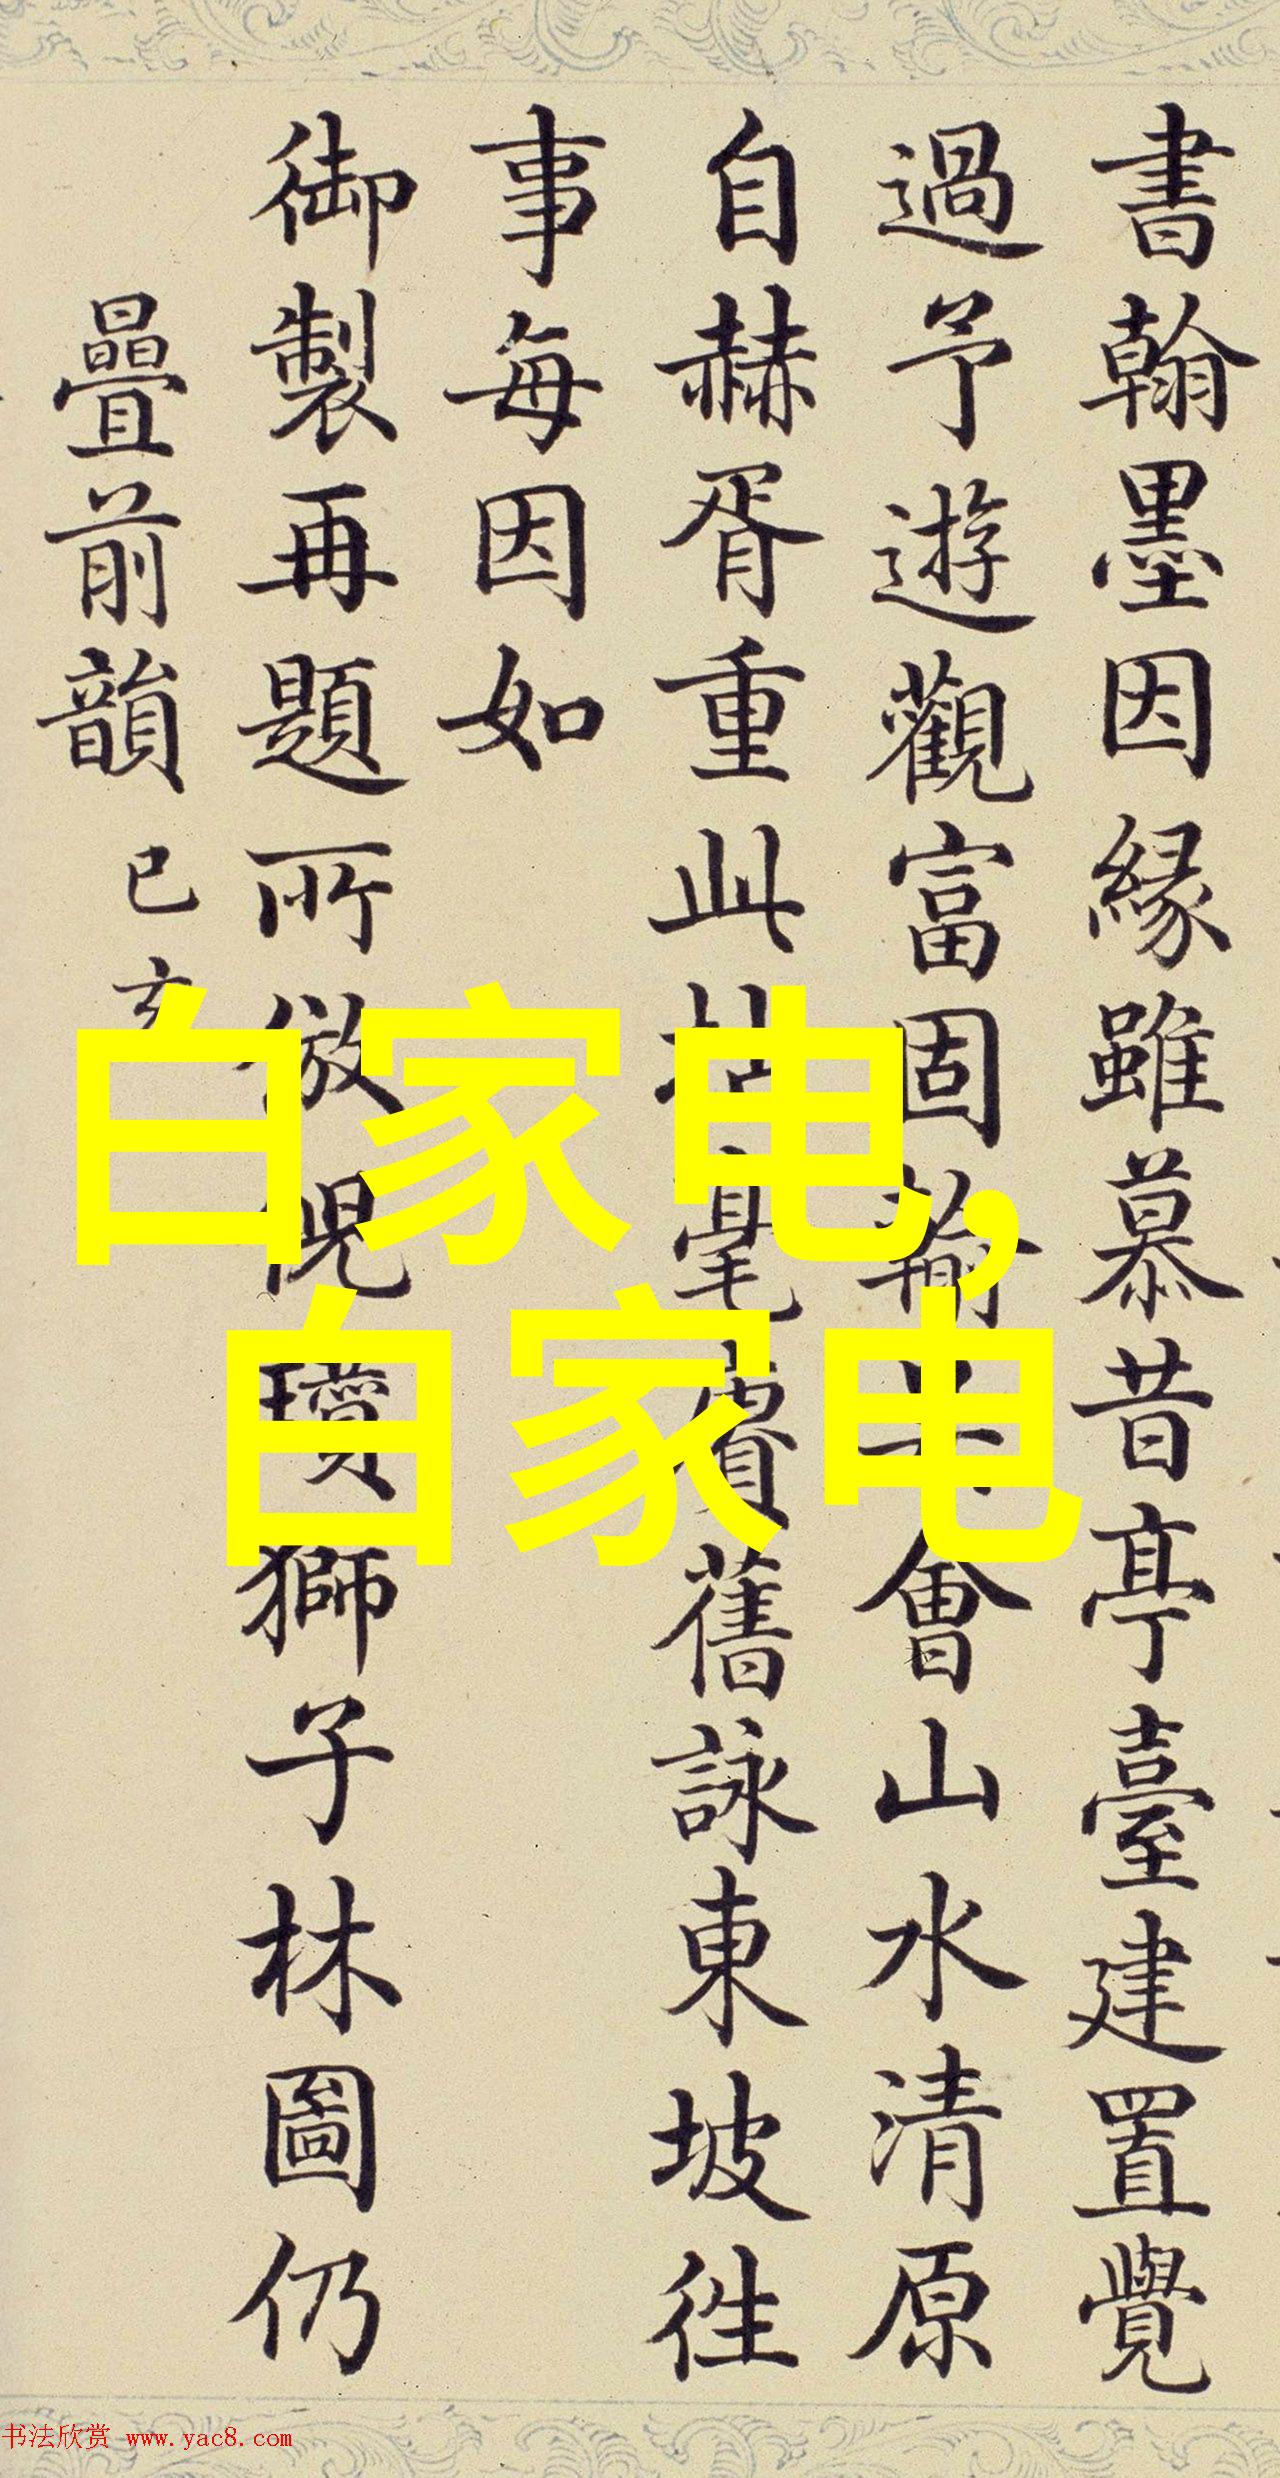 書翰墨因緣雖慕昔亭臺建置覺
過予遊觀富固輸會山水清原
自赫胥重此拈毫賡舊詠東坡徃
事每因如
御製再題所倣倪瓚獅子林圖仍
疊前韻
已亥
白家电,
白家电
书法欣赏 www.yac8.com